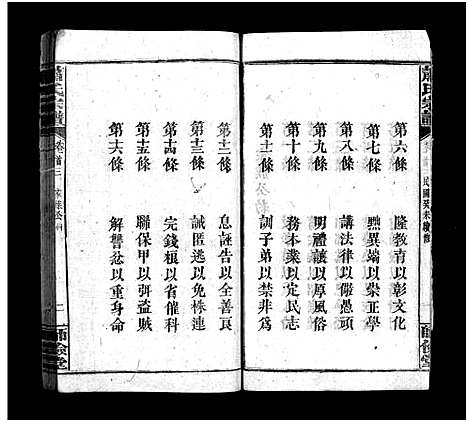 蕭氏宗譜
民國癸未續修
師儉堂
第六條 隆教育以彰文化
第七條 黜異端以崇正學
第八條 講法律以儆愚頑
第九條 明禮讓以厚風俗
第十條 務本業以定民志
第十一條 訓子弟以禁非為
第十二條 息誣告以全善良
第十三條 誡匿逃以免株連
第十四條 完錢糧以省催科
第十五條 聯保甲以弭盜賊
第十六條 解讐忿以重身命
蕭氏宗譜
卷首三
二
師儉堂